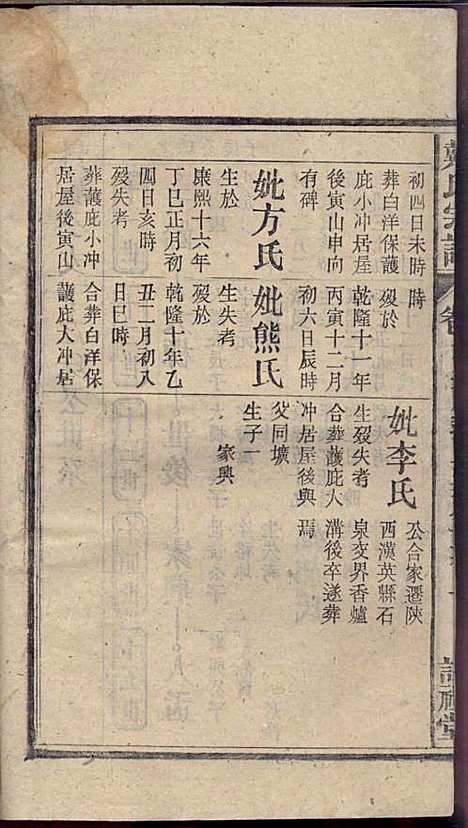 初四日未時
葬白洋保護
庇小冲居屋
後寅山申向
有碑
妣方氏
生於
康熙十六年
丁巳正月初
四日亥時
歿失考
葬護庇小冲
居屋後寅山
時
歿於
乾隆十一年
丙寅十二月
初六日辰時
妣熊氏
生失考
歿於
乾隆十年乙
丑二月初入
日巳時
合葬白洋保
護庇大冲居
妣李氏
生歿失考
合葬護庇大
冲居屋後與
父同壙
生子一
家興
公合家遷陜
西漢英縣石
泉交界香爐
溝後卒遂葬
焉
氏宗譜
卷